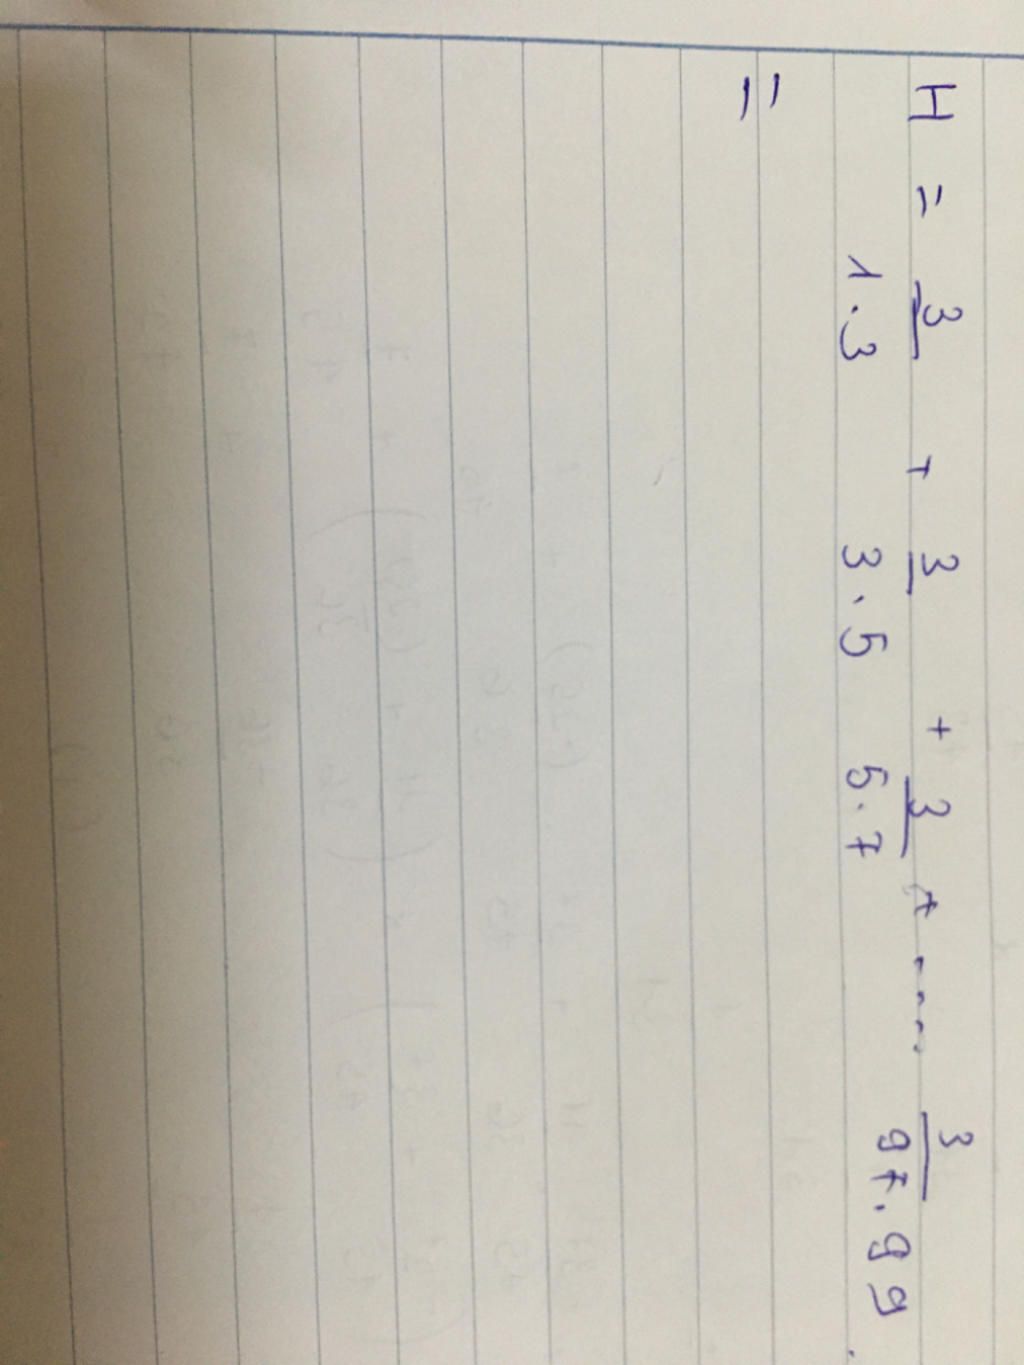 H = 3/1.3 + 3/3.5 + 3/5.7 + .... 3/97.99
=